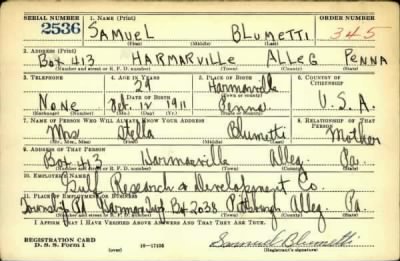 SERIAL NUMBER 1. NAME (Print) ORDER NUMBER
2536 SAMUEL BLUMETTI 345
(First) (Middle) (Last)
2. ADDRESS (Print)
Box 413 HARMARVILLE ALLEG PENNA
(Number and street or R. F. D. number) (Town) (County) (State)
3. TELEPHONE 4. AGE IN YEARS 5. PLACE OF BIRTH 6. COUNTRY OF CITIZENSHIP
29 Harmarville
DATE OF BIRTH (Town or county)
None 12 1911 Penna. U.S.A.
(Exchange) (Number) (Mo.) (Day) (Yr.) (State or country)
7. NAME OF PERSON WHO WILL ALWAYS KNOW YOUR ADDRESS 8. RELATIONSHIP OF THAT PERSON
Mrs Stella Blumetti Mother
(Mr., Mrs., Miss) (First) (Middle) (Last)
9. ADDRESS OF THAT PERSON
Box 413 Harmarville Alleg. Pa.
(Number and street or R. F. D. number) (Town) (County) (State)
10. EMPLOYER'S NAME
Gulf Research & Development Co.
11. PLACE OF EMPLOYMENT OR BUSINESS
Harmar Twp Bx 2038 Pittsburgh Alleg Pa.
(Number and street or R. F. D. number) (Town) (County) (State)
I AFFIRM THAT I HAVE VERIFIED ABOVE ANSWERS AND THAT THEY ARE TRUE.
REGISTRATION CARD
D. S. S. Form 1 16—17105 Samuel Blumetti
(Registrant's signature)